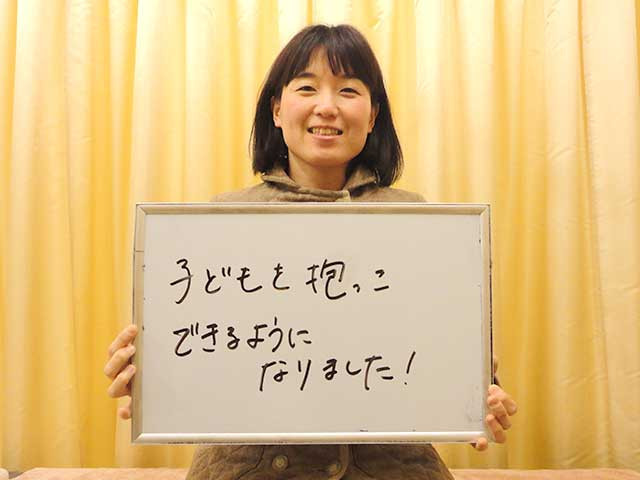 子どもを抱っこ
できるように
なりました!